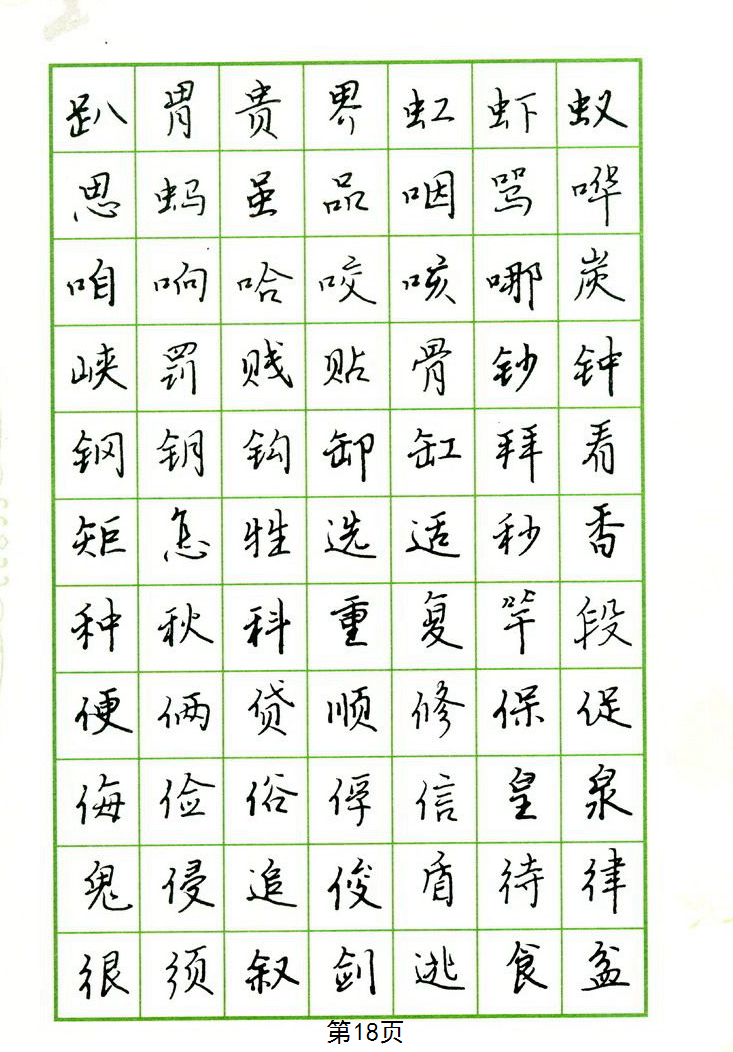 趴胃贵界虹虾蚁
思蚂虽品咽骂哗
咱响哈咬咳哪炭
峡罚贱贴骨钞钟
钢钥钩卸缸拜看
矩怎牲选适秒香
种秋科重复竿段
便俩贷顺修保促
侮俭俗俘信皇泉
鬼侵追俊盾待律
很须叙剑逃食盆
第18页